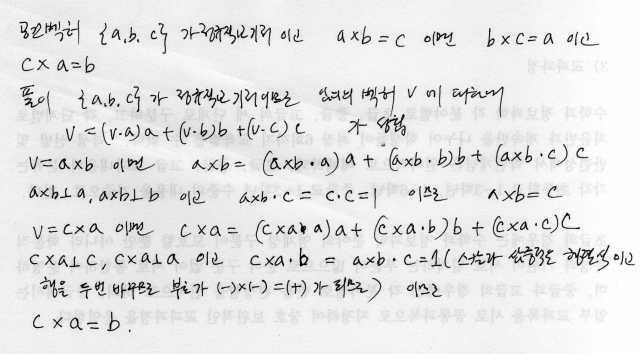 공간벡터 {a, b, c} 가 정규직교기저 이고 a×b = c 이면 b×c = a 이고
c × a = b
풀이 {a, b, c} 가 정규직교기저이므로 임의의 벡터 V 에 대하여
V = (V·a) a + (V·b) b + (V·c) c 가 성립
V = a×b 이면 a×b = (a×b·a) a + (a×b·b) b + (a×b·c) c
a×b⊥a, a×b⊥b 이고 a×b·c = c·c = 1 이므로 a×b = c
V = c×a 이면 c×a = (c×a·a) a + (c×a·b) b + (c×a·c) c
c×a⊥c, c×a⊥a 이고 c×a·b = a×b·c = 1 (스칼라 삼중적은 행렬식이고
행을 두번 바꾸므로 부호가 (−)×(−) = (+) 가 되므로) 이므로
c × a = b.